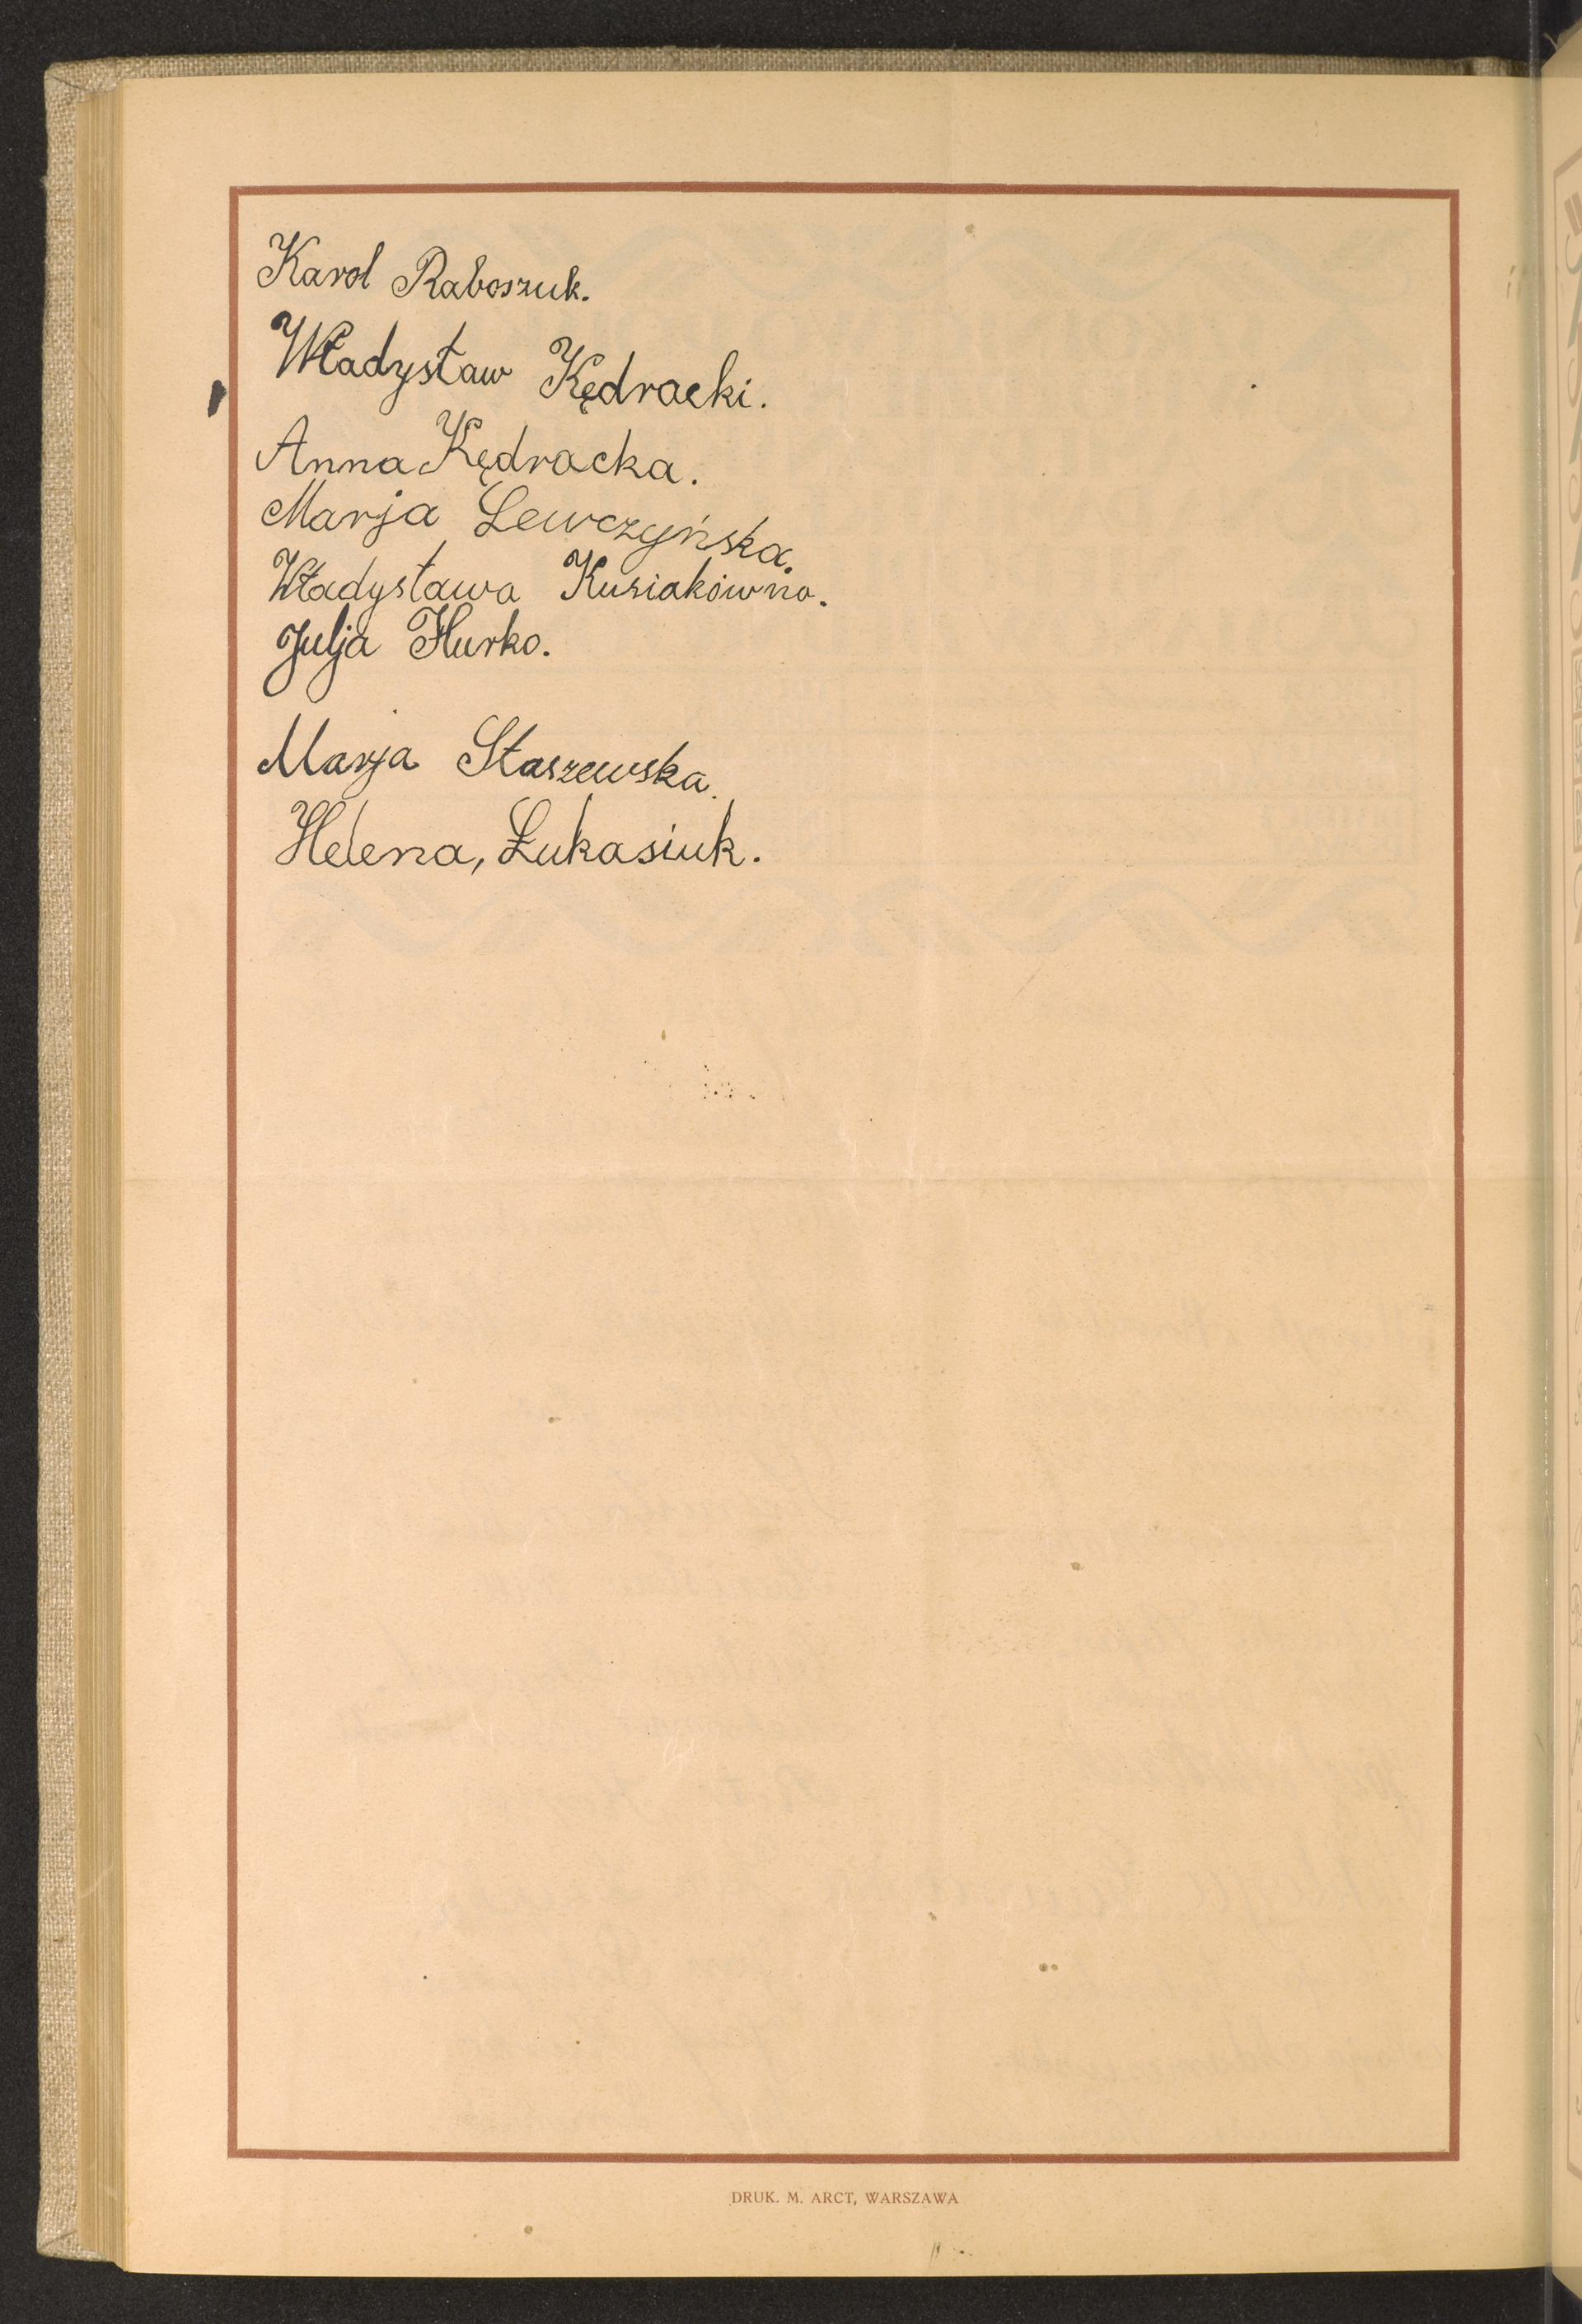 Karol Raboszuk.
Władysław Kędracki.
Anna Kędracka.
Marja Lewczyńska.
Władysława Kusiakówna.
Julja Hurko.
Marja Staszewska.
Helena, Łukasiuk.
DRUK. M. ARCT, WARSZAWA